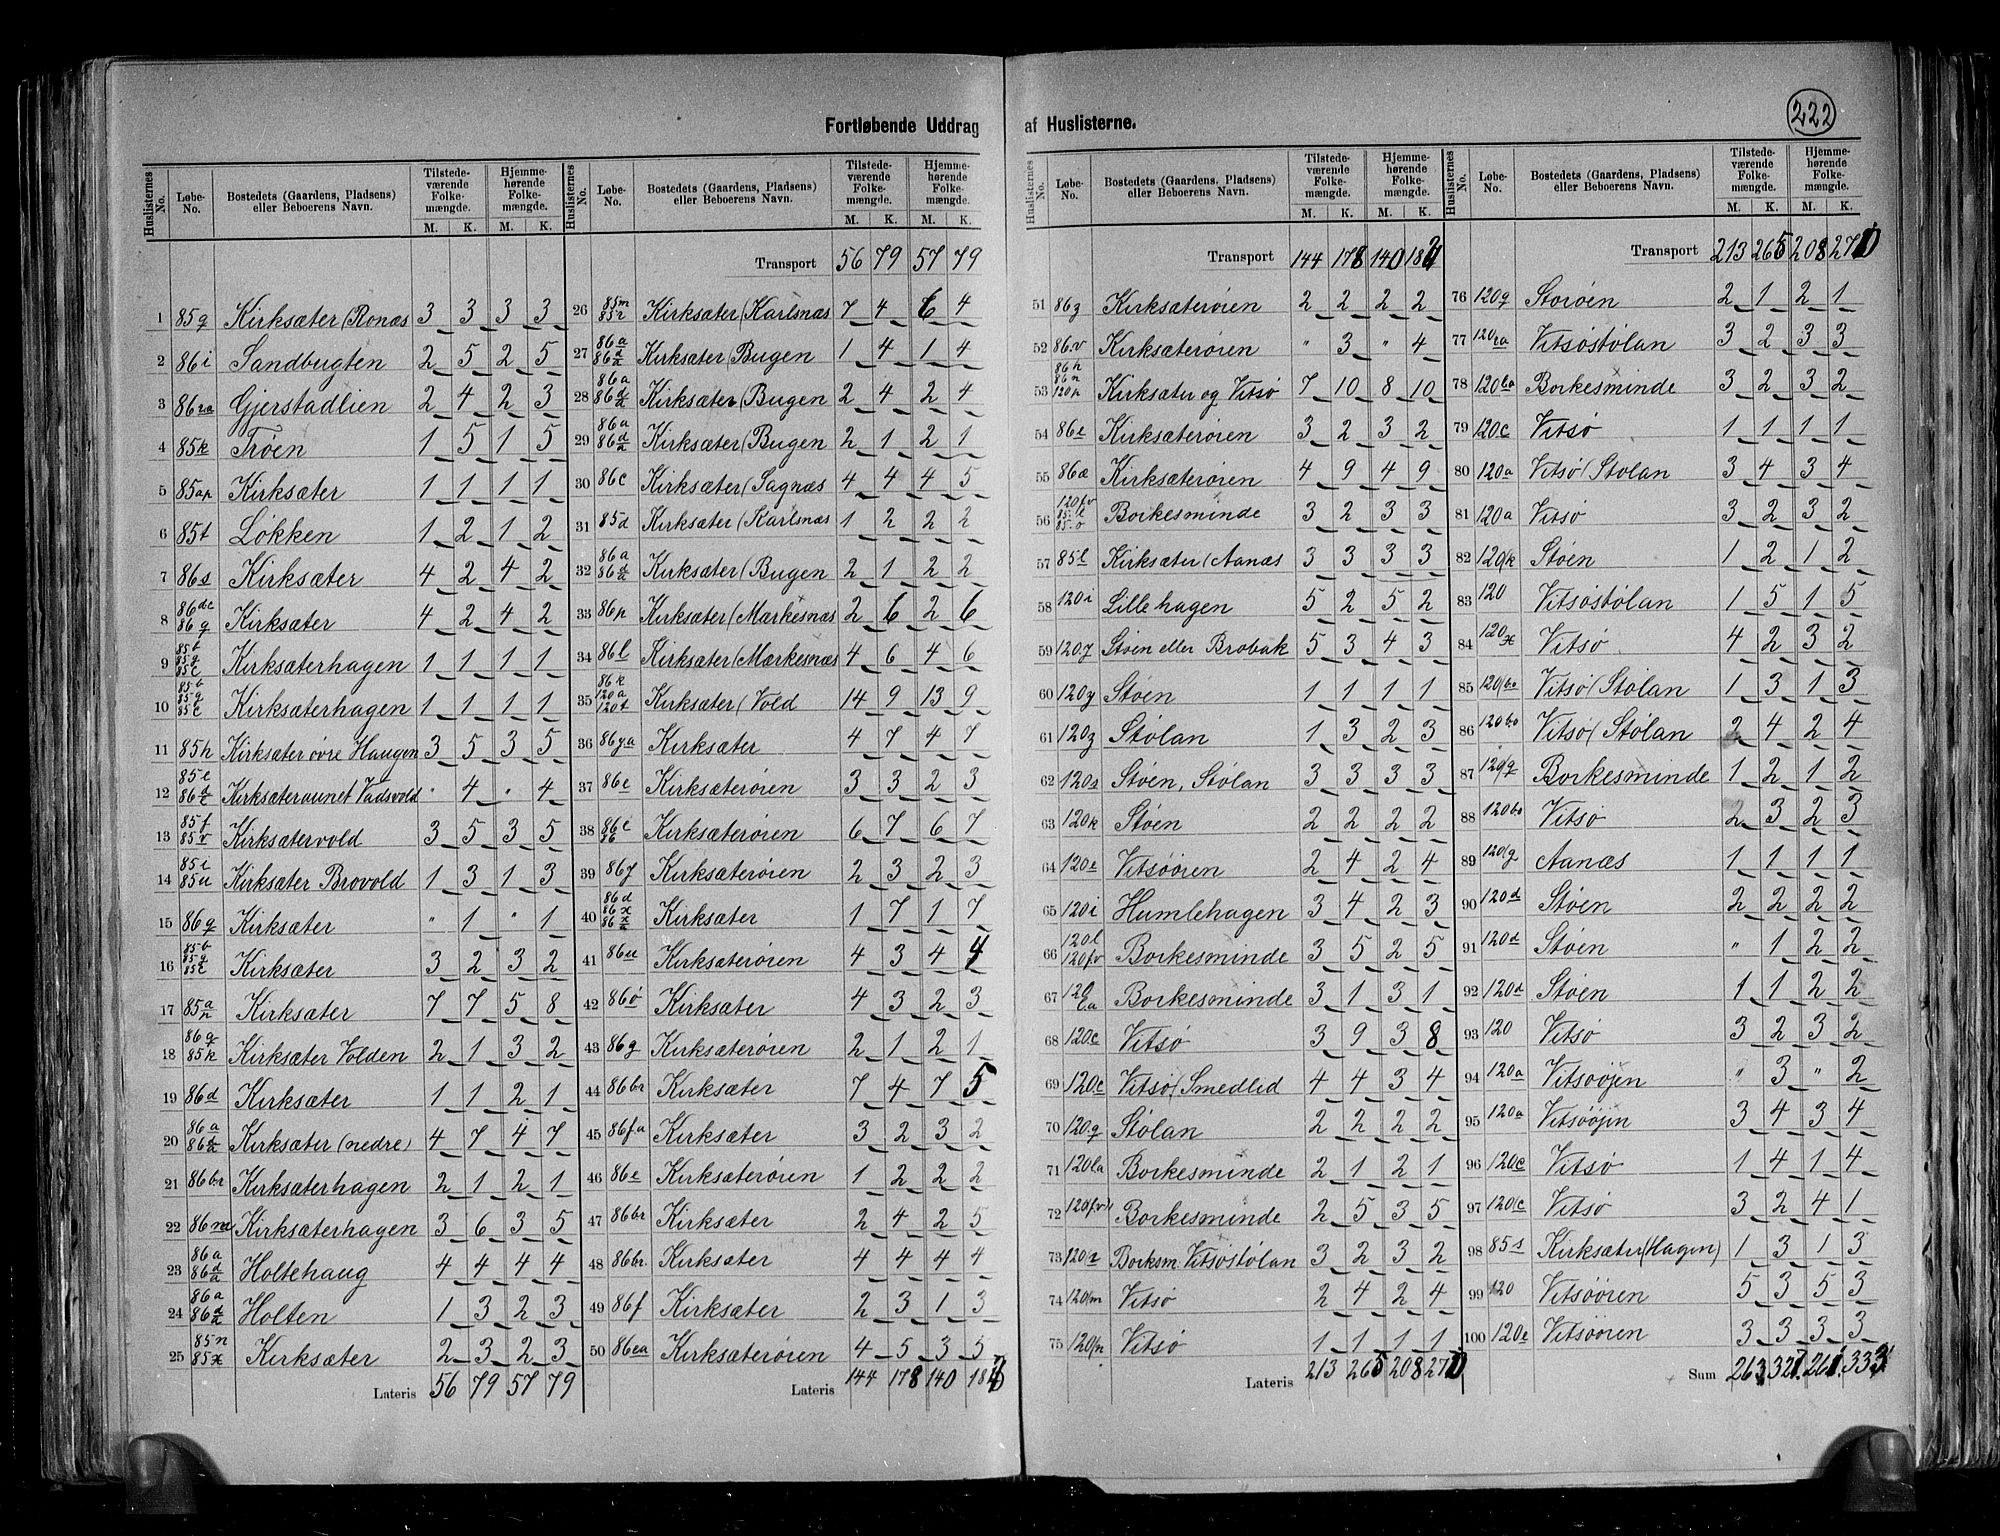 222
Fortløbende Uddrag af Huslisterne.
Huslisternes No. | Løbe-No. | Bostedets (Gaardens, Pladsens) eller Beboerens Navn. | Tilstedeværende Folkemængde. M. K. | Hjemmehørende Folkemængde. M. K.
1 85q Kirksæter (Ronæs 3 3 3 3
2 86i Sandbugten 2 5 2 5
3 Gjerstadlien 2 4 2 3
4 85k Trøen 1 5 1 5
5 85ap Kirksæter 1 1 1 1
6 85t Løkken 1 2 1 2
7 86s Kirksæter 4 2 4 2
8 86q Kirksæter 4 2 4 2
9 Kirksæterhagen 1 1 1 1
10 Kirksæterhagen 1 1 1 1
11 85h Kirksæter øvre Haugen 3 5 3 5
12 Kirksæteraunet Vadsvold " 4 " 4
13 85f 85v Kirksætervold 3 5 3 5
14 85i 85u Kirksæter Brovold 1 3 1 3
15 86q Kirksæter " 1 " 1
16 Kirksæter 3 2 3 2
17 Kirksæter 7 7 5 8
18 86q 85k Kirksæter Volden 2 1 3 2
19 86d Kirksæter 1 1 2 1
20 86a Kirksæter (nedre) 4 7 4 7
21 86br Kirksæterhagen 2 1 2 1
22 Kirksæterhagen 3 6 3 5
23 86a Holtehaug 4 4 4 4
24 86a Holten 1 3 2 3
25 85n 85x Kirksæter 2 3 2 3
Lateris 56 79 57 79
Huslisternes No. | Løbe-No. | Bostedets (Gaardens, Pladsens) eller Beboerens Navn. | Tilstedeværende Folkemængde. M. K. | Hjemmehørende Folkemængde. M. K.
Transport 56 79 57 79
26 85m 85r Kirksæter (Karlsnæs 7 4 6 4
27 86a Kirksæter (Bugen 1 4 1 4
28 86a Kirksæter (Bugen 2 4 2 4
29 86a Kirksæter (Bugen 2 1 2 1
30 86c Kirksæter (Sagnæs 4 4 4 5
31 85d Kirksæter (Karlsnæs 1 2 2 2
32 86a Kirksæter (Bugen 2 1 2 2
33 86p Kirksæter (Mærkesnæs 2 6 2 6
34 86l Kirksæter (Mærkesnæs 4 6 4 6
35 86k 120a 120t Kirksæter (Vold 14 9 13 9
36 86ya Kirksæter 4 7 4 7
37 86e Kirksæterøien 3 3 2 3
38 86i 86 Kirksæterøien 6 7 6 7
39 86y Kirksæterøien 2 3 2 3
40 86d 86x Kirksæter 1 7 1 7
41 86u Kirksæterøien 4 3 4 4
42 86ø Kirksæter 4 3 2 3
43 86g Kirksæterøien 2 1 2 1
44 86br Kirksæter 7 4 7 5
45 86fa Kirksæter 3 2 3 2
46 86e Kirksæterøien 1 2 2 2
47 86br Kirksæter 2 4 2 5
48 86br. Kirksæter 4 4 4 4
49 86f Kirksæter 2 3 1 3
50 86ea Kirksæterøien 4 5 3 5
Lateris 144 178 140
Huslisternes No. | Løbe-No. | Bostedets (Gaardens, Pladsens) eller Beboerens Navn. | Tilstedeværende Folkemængde. M. K. | Hjemmehørende Folkemængde. M. K.
Transport 144 178 140
51 86z Kirksæterøien 2 2 2 2
52 86v Kirksæterøien " 3 " 4
53 86h 86n 120p Kirksæter og Vitsø 7 10 8 10
54 86e Kirksæterøien 3 2 3 2
55 86æ Kirksæterøien 4 9 4 9
56 120fv 85l 85o Borkesminde 3 2 3 3
57 85l Kirksæter (Aanæs 3 3 3 3
58 120i Lillehagen 5 2 5 2
59 120y Støen eller Brobak 5 3 4 3
60 120y Støen 1 1 1 1
61 120z Stølan 1 3 2 3
62 120s Støen, Stølan 3 3 3 3
63 120k Støen 2 2 2 2
64 120e Vitsøøien 2 4 2 4
65 120i Humlehagen 3 4 2 3
66 120l 120fv Borkesminde 3 5 2 5
67 Borkesminde 3 1 3 1
68 120c Vitsø 3 9 3 8
69 120c Vitsø (Smedlid 4 4 3 4
70 120q Stølan 2 2 2 2
71 120la Borkesminde 2 1 2 1
72 120fv Borkesminde 2 5 3 5
73 120r Borksm. Vitsøstølan 3 2 3 2
74 120m Vitsø 2 4 2 4
75 120n Vitsø 1 1 1 1
Lateris 213 265 208 270
Huslisternes No. | Løbe-No. | Bostedets (Gaardens, Pladsens) eller Beboerens Navn. | Tilstedeværende Folkemængde. M. K. | Hjemmehørende Folkemængde. M. K.
Transport 213 265 208 270
76 120q Storøen 2 1 2 1
77 Vitsøstølan 3 2 3 3
78 120ba Borkesminde 3 2 3 2
79 120c Vitsø 1 1 1 1
80 120a Vitsø (Stølan 3 4 3 4
81 120a Vitsø 3 2 3 2
82 120k Støen 1 2 1 2
83 120 Vitsøstølan 1 5 1 5
84 120x Vitsø 4 2 3 2
85 120bo Vitsø (Stølan 1 3 1 3
86 120bo Vitsø (Stølan 2 4 2 4
87 120q Borkesminde 1 2 1 2
88 120bo Vitsø 2 3 2 3
89 120g Aanæs 1 1 1 1
90 120d Støen 2 2 2 2
91 120d Støen " 1 2 2
92 120d Støen 1 1 2 2
93 120 Vitsø 3 2 3 2
94 120a Vitsøøjen " 3 " 2
95 120a Vitsøøjin 3 4 3 4
96 120c Vitsø 1 4 1 4
97 120c Vitsø 3 2 4 1
98 85s Kirksæter (Hagen) 1 3 1 3
99 120 Vitsøøren 5 3 5 3
100 120e Vitsøøren 3 3 3 3
Sum 263 327. 261. 333